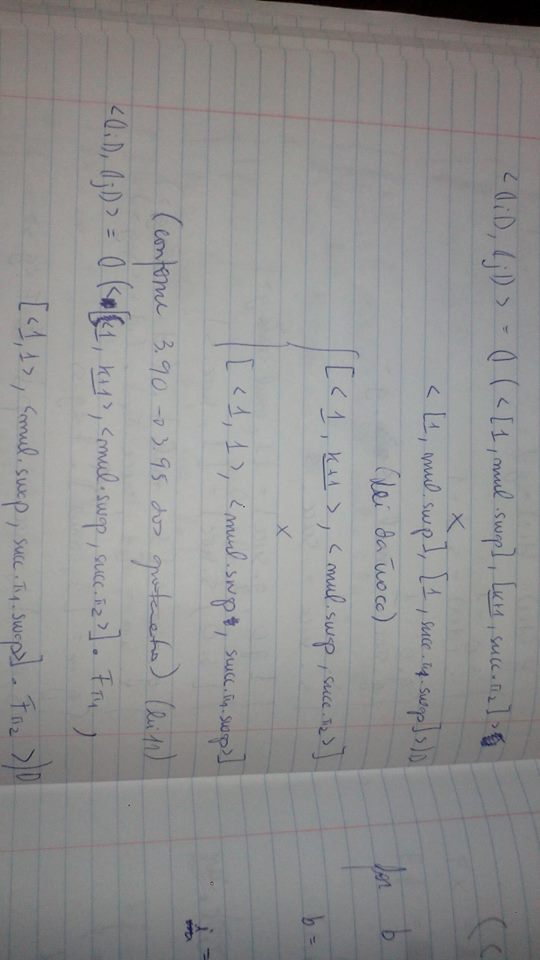 <(|i|), (|j|)> = (| (< [1, mul.swap], [k+1, succ.π2] >
×
< [1, mul.swp], [1, succ.π1.swap] >) |)
(Lei da troca)
[ < 1, k+1 >, < mul.swap, succ.π2 > ]
×
[ < 1, 1 >, < mul.swap, succ.π1.swap > ]
(conforme 3.90 → 3.95 dos apontamentos) (lei 11)
<(|i|), (|j|)> = (| (< [ < 1, k+1 >, < mul.swap, succ.π2 > ] . Fπ1 ,
[ < 1, 1 >, < mul.swap, succ.π1.swap > ] . Fπ2 >) |)
b
b =
i =